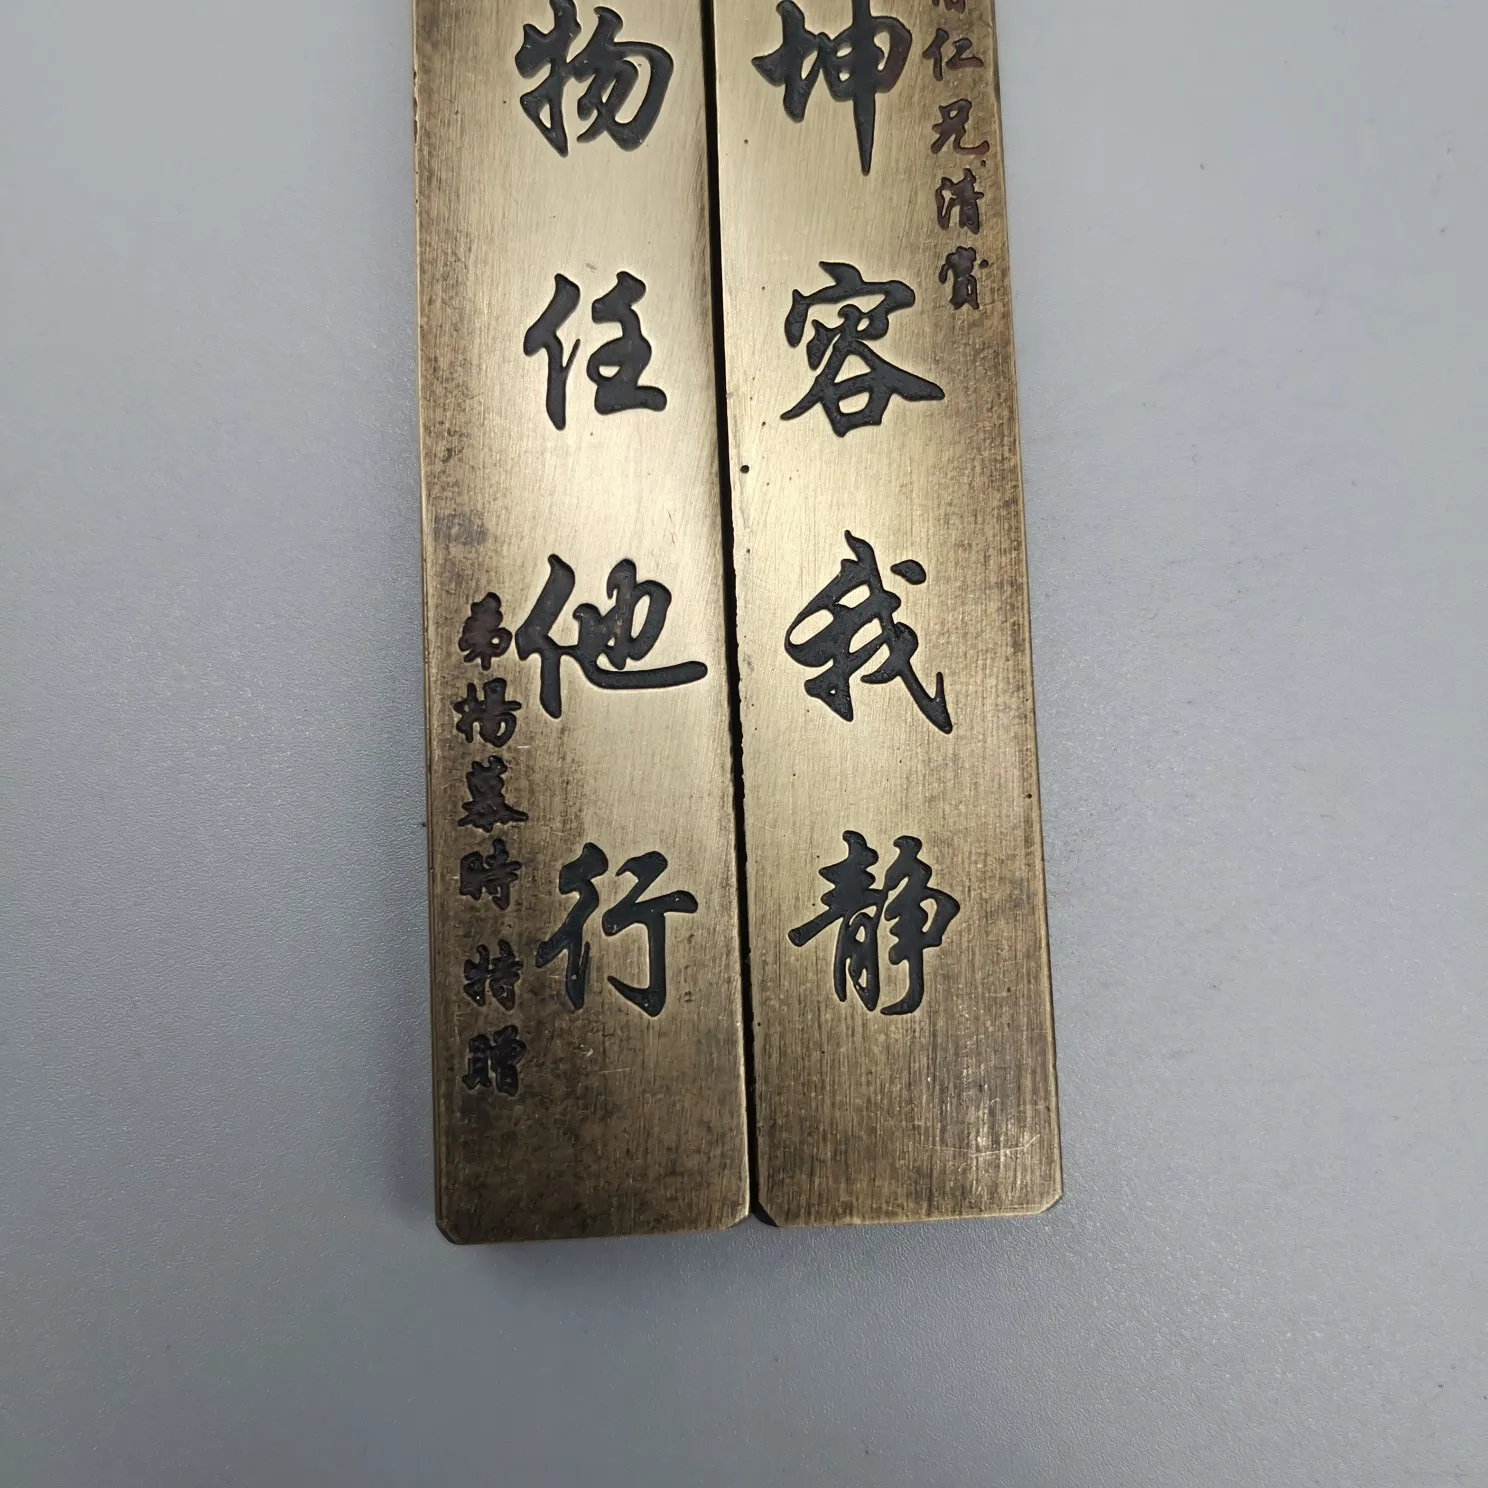 仁兄清赏
坤容我静
物任他行
弟杨慕时特赠